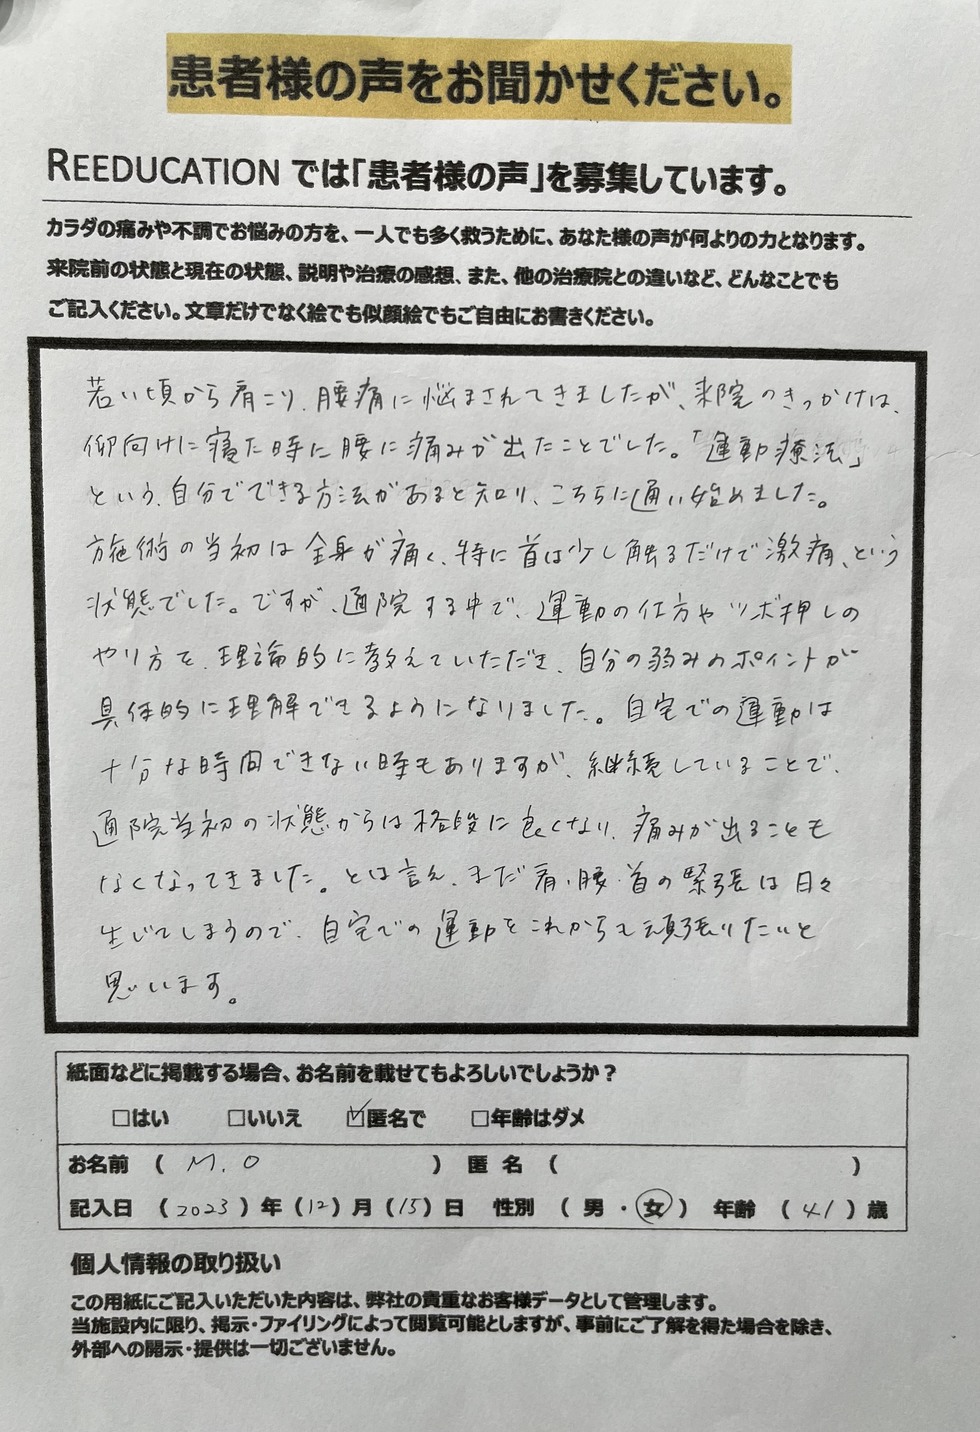 患者様の声をお聞かせください。
REEDUCATION では「患者様の声」を募集しています。
カラダの痛みや不調でお悩みの方を、一人でも多く救うために、あなた様の声が何よりの力となります。
来院前の状態と現在の状態、説明や治療の感想、また、他の治療院との違いなど、どんなことでも
ご記入ください。文章だけでなく絵でも似顔絵でもご自由にお書きください。
若い頃から肩こり、腰痛に悩まされてきましたが、来院のきっかけは、
仰向けに寝た時に腰に痛みが出たことでした。「運動療法」
という、自分でできる方法があると知り、こちらに通い始めました。
施術の当初は全身が痛く、特に首は少し触るだけで激痛、という
状態でした。ですが、通院する中で、運動の仕方やツボ押しの
やり方を、理論的に教えていただき、自分の弱みのポイントが
具体的に理解できるようになりました。自宅での運動は
十分な時間できない時もありますが、継続していることで、
通院当初の状態からは格段に良くなり、痛みが出ることも
なくなってきました。とは言え、まだ肩・腰・首の緊張は日々
生じてしまうので、自宅での運動をこれからも頑張りたいと
思います。
紙面などに掲載する場合、お名前を載せてもよろしいでしょうか？
□はい □いいえ ☑匿名で □年齢はダメ
お名前 （ M.O ） 匿名 （ ）
記入日 （2023）年（12）月（15）日 性別 （ 男・女 ） 年齢 （ 41 ）歳
個人情報の取り扱い
この用紙にご記入いただいた内容は、弊社の貴重なお客様データとして管理します。
当施設内に限り、掲示・ファイリングによって閲覧可能としますが、事前にご了解を得た場合を除き、
外部への開示・提供は一切ございません。